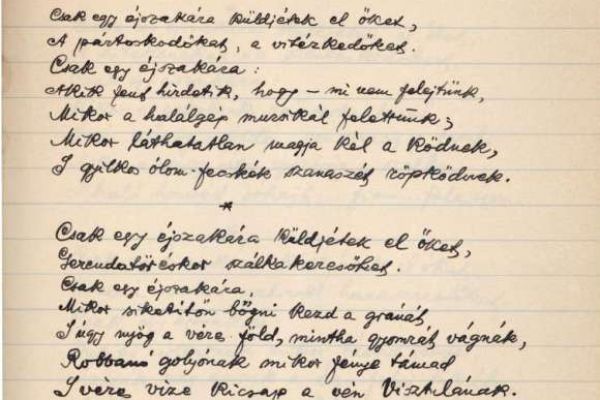 Csak egy éjszakára küldjétek el őket,
A pártoskodókat, a vitézkedőket.
Csak egy éjszakára:
Akik fent hirdetik, hogy – mi nem felejtünk,
Mikor a halálgép muzsikál felettünk;
Mikor láthatatlan magja kél a ködnek,
S gyilkos ólom-fecskék szanaszét röpködnek.
*
Csak egy éjszakára küldjétek el őket,
Gerendatöréskor szálka keresőket.
Csak egy éjszakára,
Mikor siketitőn bőgni kezd a gránát
S úgy nyög a véres föld, mintha gyomrát vágnák,
Robbanó golyónak mikor fénye támad
S véres vize kicsap a vén Visztulának.